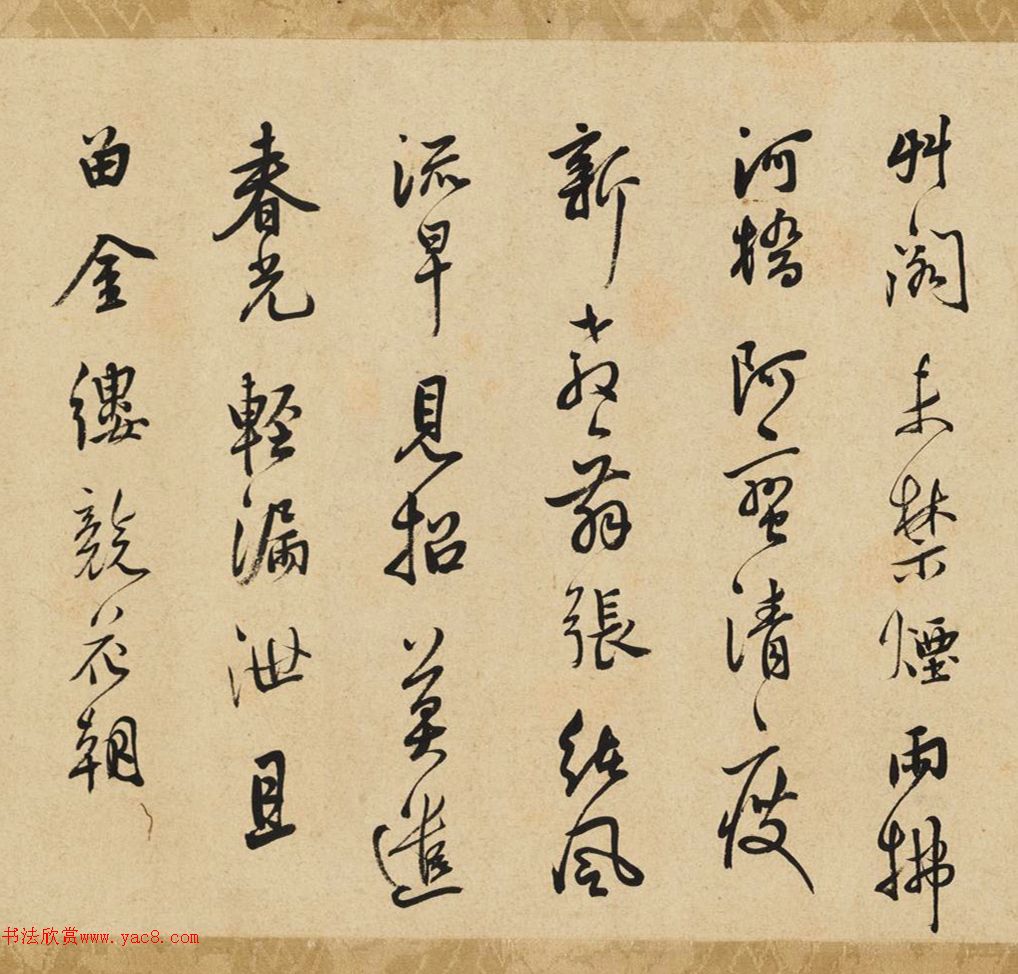 艸閣未禁煙雨拂
河橋阿蠻清瘦
新教舞張緒風
流早見招莫遣
春光輕漏泄且
留金縷競花朝
书法欣赏www.yac8.com